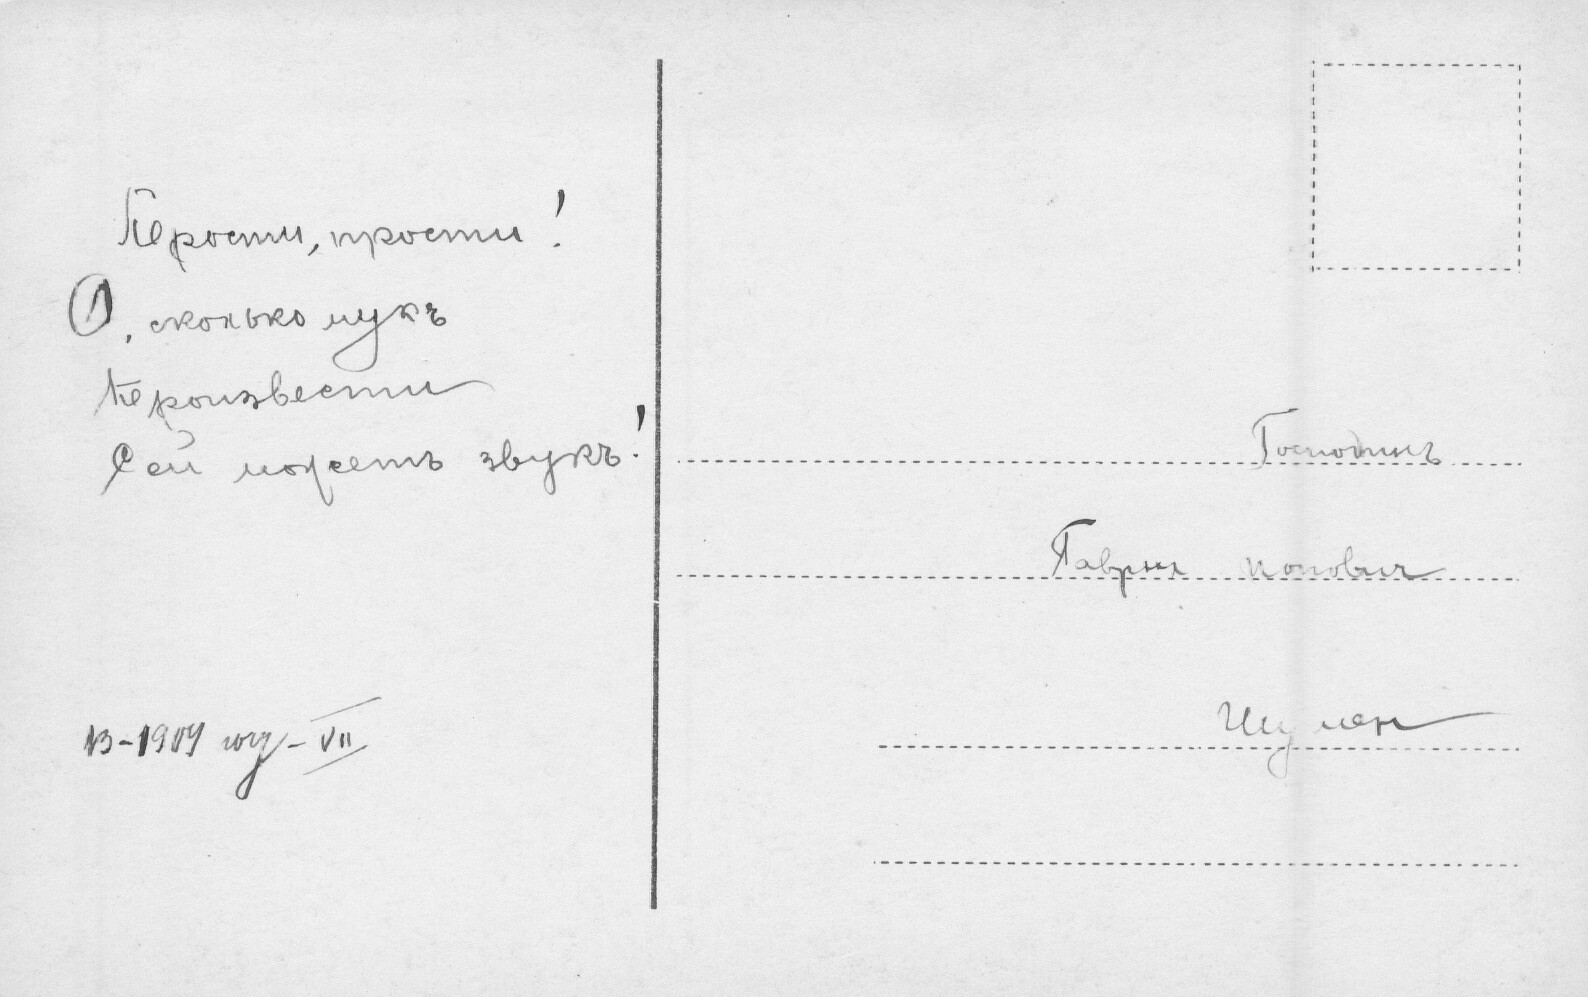 Прости, прости!
О, сколько мукъ
Произвести
Сей можетъ звукъ!
13-1909 год-VII
Господинъ
Гаврил Попович
Шумен